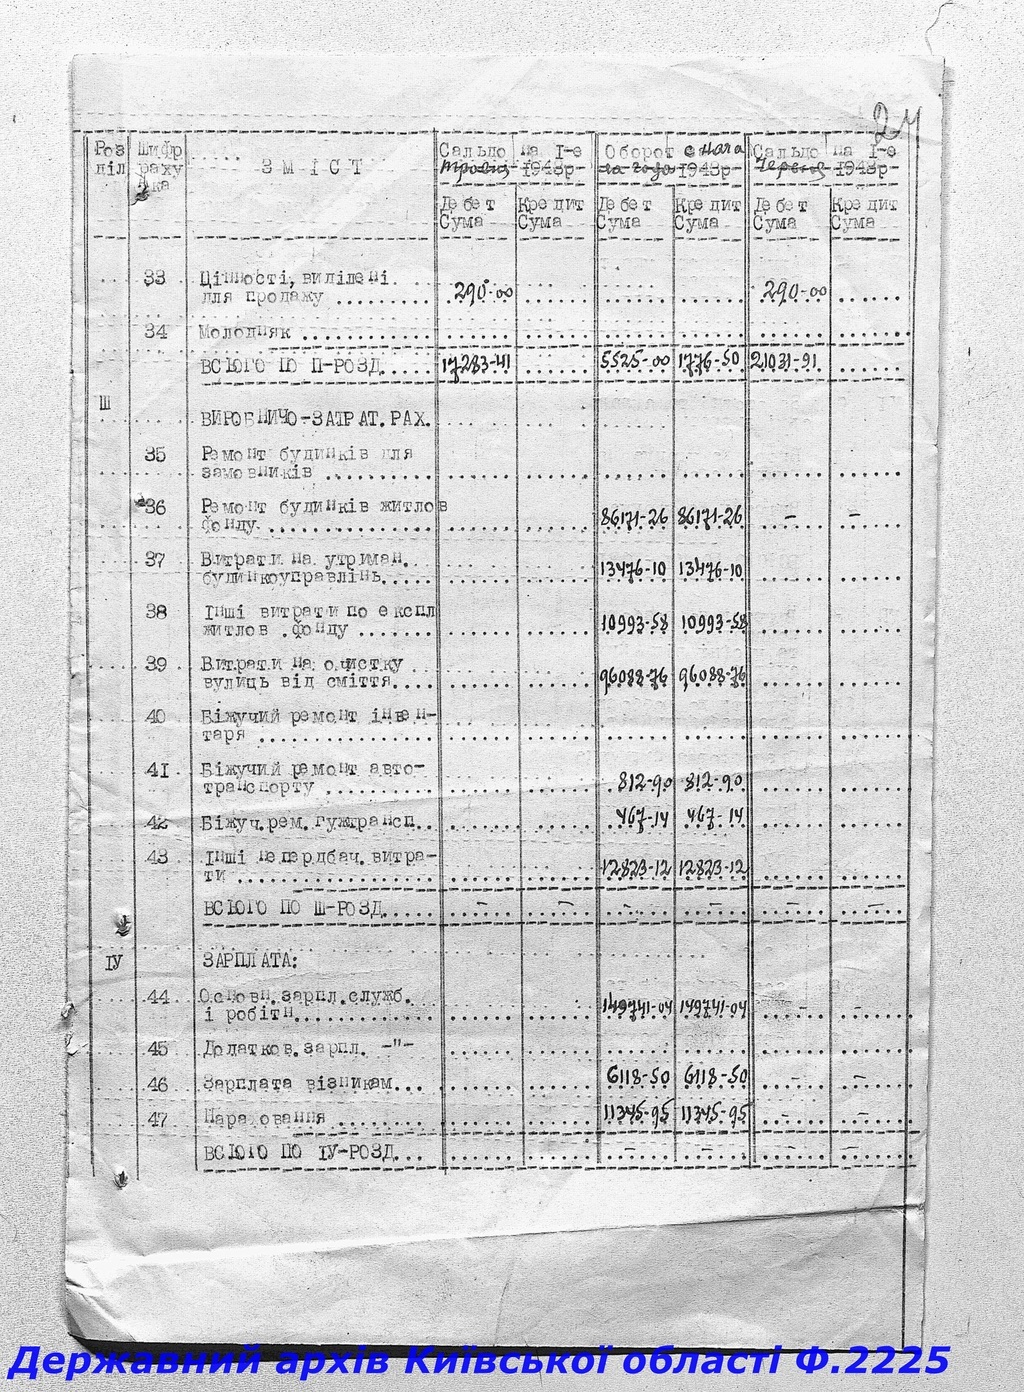 24
Роз Шифр Сальдо на І-е Оборот с нача Сальдо на І-е
діл раху ..... З М І С Т 1943р ла года 1943р 1943р
нка
Дебет Кредит Дебет Кредит Дебет Кредит
Сума Сума Сума Сума Сума Сума
33 Цінності, виділені
для продажу ........ 290-00 290-00
34 Молодняк ............
ВСЬОГО ПО П-РОЗД..... 17283-41 5525-00 1776-50 21031-91
Ш
ВИРОБНИЧО-ЗАТРАТ.РАХ.
35 Ремонт будинків для
замовників ..........
36 Ремонт будинків житлов
фонду............... 86171-26 86171-26 - -
37 Витрати на утриман.
будинкоуправлінь.... 13476-10 13476-10
38 Інші витрати по експл
житлов .фонду ....... 10993-58 10993-58
39 Витрати на очистку
вулиць від сміття.... 96088-76 96088-76
40 Біжучий ремонт інвен-
таря ................
41 Біжучий ремонт авто-
транспорту .......... 812-90 812-90
42 Біжуч.рем. гужтрансп.. 467-14 467-14
43 Інші непердбач. витра-
ти .................. 12823-12 12823-12
ВСЬОГО ПО Ш-РОЗД..... - - - - - -
ІУ ЗАРПЛАТА:
44 Основн.зарпл.служб.
і робітн............. 149741-04 149741-04 - -
45 Додатков.зарпл. -"-
46 Зарплата візникам... 6118-50 6118-50 - -
47 Нараховання ......... 11345-95 11345-95 - -
ВСЬОГО ПО ІУ-РОЗД... - - - -
Державний архів Київської області Ф.2225